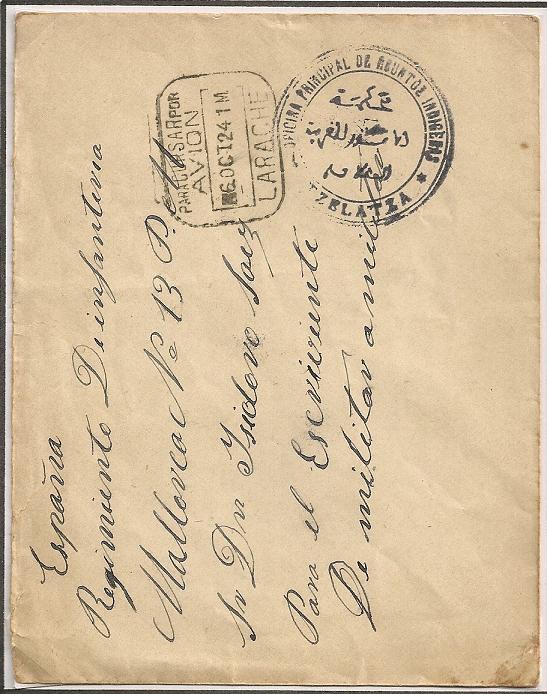 PARA CURSAR POR
AVION
6 OCT 24 1 M
LARACHE
OFICINA PRINCIPAL DE ASUNTOS INDIGENAS
TZELATZA
España
Regimiento De infanteria
Mallorca No 13 P.
Sr Dn Isidoro Saez
Para el Escriviente
De militar a mil